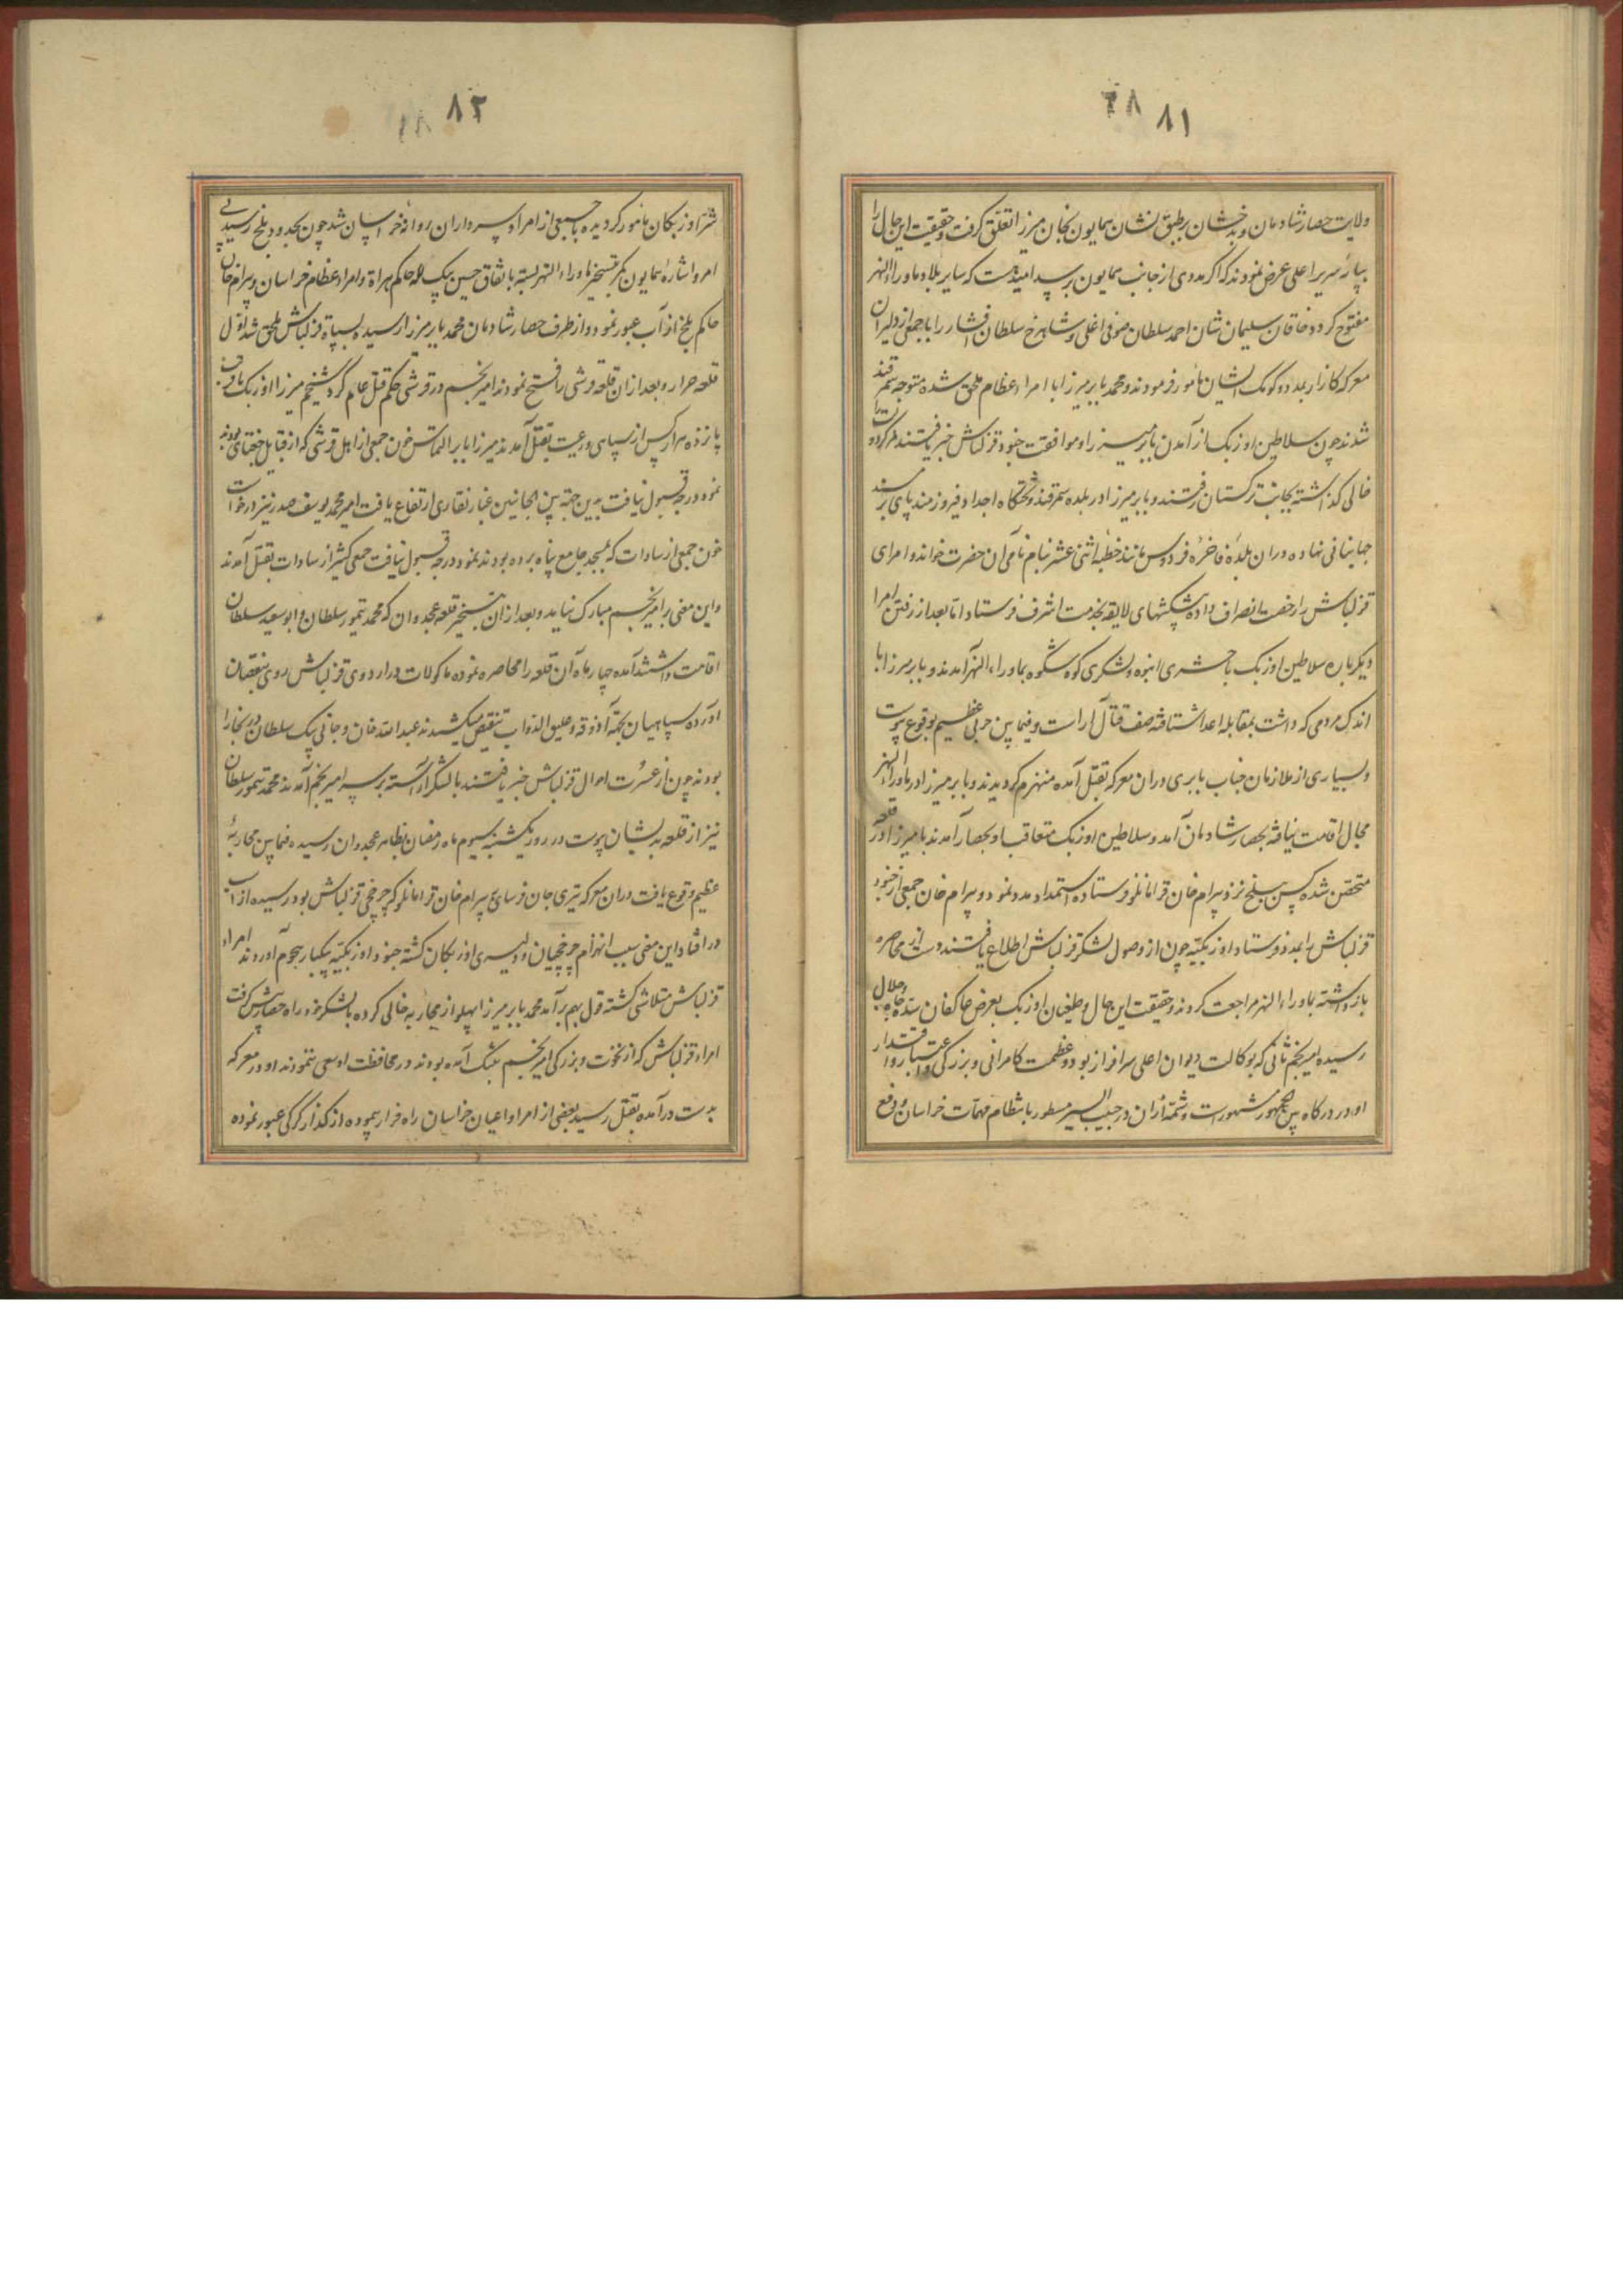 ۸۱
ولایت حصار شادمان و بدخشان برطبق نشان همایون بخان میرزا تعلق گرفت و حقیقت این حال را
بپایه سریر اعلی عرض نمودند که اگر مددی از جانب همایون برسد امید هست که سایر بلاد ماوراءالنهر
مفتوح گردد خاقان سلیمان شان احمد سلطان صوفی اغلی و شاهرخ سلطان افشار را با جمعی از دلیران
معرکه کارزار بمدد و کومک ایشان مامور فرمودند و محمد بابر میرزا با امراء عظام ملحق شده متوجه سمرقند
شدند چون سلاطین اوزبک از آمدن بابر میرزا و موافقت جنود قزلباش خبر یافتند سمرقند را
خالی گذاشته بجانب ترکستان رفتند و بابر میرزا در بلده سمرقند و تختگاه اجداد فیروزمند پای بر مسند
جهانبانی نهاده دران بلده فاخره فردوس مانند خطبه اثنی عشر بنام نامی آن حضرت خواند و امرای
قزلباش را رخصت انصراف داده پیشکشهای لایقه بخدمت اشرف فرستاد اما بعد از رفتن امرا
دیگرباره سلاطین اوزبک با حشری انبوه و لشکری کوه شکوه بماوراءالنهر آمدند و بابر میرزا با
اندک مردمی که داشت بمقابله اعدا شتافته صف قتال آراست و فیمابین حربی عظیم بوقوع پیوست
و بسیاری از ملازمان جناب بابری دران معرکه بقتل آمده منهزم گردیدند و بابر میرزا در ماوراءالنهر
مجال اقامت نیافته بحصار شادمان آمد و سلاطین اوزبک متعاقب او بحصار آمدند بابر میرزا در قلعه
متحصن شده کس ببلخ نزد بیرام خان قرامانلو فرستاده استمداد مدد نمود و بیرام خان جمعی از جنود
قزلباش را بمدد فرستاد اوزبکیه چون از وصول لشکر قزلباش اطلاع یافتند دست از محاصره
بازداشته بماوراءالنهر مراجعت کردند و حقیقت این حال و طغیان اوزبک بعرض عاکفان سده جاه و جلال
رسیده امیر نجم ثانی که بوکالت دیوان اعلی سرافراز بود و عظمت کامرانی و بزرگی و اعتبار و اقتدار
او در درگاه بین الجمهور مشهورست و شمه ازان در حبیب السیر مسطور با نتظام مهمات خراسان و دفع
۸۲
شر اوزبکان مامور گردیده با جمعی از امرا و سرداران روانه خراسان شد چون بحدود بلخ رسید بی
امر و اشاره همایون کمر بتسخیر ماوراءالنهر بسته باتفاق حسین بیک لله حاکم هراة و امراء عظام خراسان و بیرام خان
حاکم بلخ از آب عبور نمود و از طرف حصار شادمان محمد بابر میرزا رسیده بسپاه قزلباش ملحق شد اول
قلعه خزار و بعد ازان قلعه قرشی را فتح نمودند امیر نجم در قرشی حکم قتل عام کرد شیخم میرزا اوزبک با قریب
پانزده هزار کس از سپاهی و رعیت بقتل آمدند میرزا بابر التماس خون جمعی از اهل قرشی که از قبایل جغتای بودند
نمود درجه قبول نیافت بدین جهة بین الجانبین غبار نقاری ارتفاع یافت امیر محمد یوسف صدر نیز درخواست
خون جمعی از سادات که بمسجد جامع پناه برده بودند نمود درجه قبول نیافت جمعی کثیر از سادات بقتل آمدند
و این معنی بر امیر نجم مبارک نیامد و بعد ازان بتسخیر قلعه عجدوان که محمد تیمور سلطان و ابوسعید سلطان
اقامت داشتند آمده چهار ماه آن قلعه را محاصره نموده ماکولات در اردوی قزلباش روی بنقصان
آورده سپاهیان بجهة آذوقه و علیق الدواب تنقیص میکشیدند عبد الله خان و جانی بیک سلطان در بخارا
بودند چون از عسرت احوال قزلباش خبر یافتند با لشکر آراسته بر سر امیر نجم آمدند محمد تیمور سلطان
نیز از قلعه بدیشان پیوست در روز یکشنبه سیوم ماه رمضان بظاهر عجدوان رسیده فیمابین محاربه
عظیم وقوع یافت دران معرکه تیری جان فرسای بر بیرام خان قرامانلو که چرخچی قزلباش بود رسیده از اسب
در افتاد این معنی سبب انهزام چرخچیان و دلیری اوزبکان گشته جنود اوزبکیه بیکبار هجوم آوردند امراء
قزلباش متلاشی گشته قول بهم برآمد محمد بابر میرزا پهلو از محاربه خالی کرده با لشکر خود راه حصار پیش گرفت
امراء قزلباش که از نخوت و بزرگی امیر نجم بتنگ آمده بودند در محافظت او سعی ننمودند او در معرکه
بدست درآمده بقتل رسید بعضی از امرا و اعیان خراسان راه فرار پیموده از گذار کرکی عبور نموده